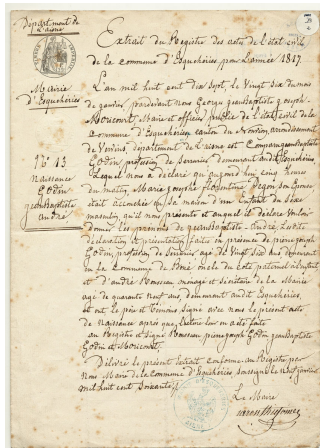 Département de
l'aisne
Extrait du Registre des actes de l'état civil
de la commune d'Esquéhéries pour l'année 1817.
Mairie
d'Esquéheries
L'an mil huit cent dix Sept, le Vingt Six du mois
de janvier, pardevant nous George jeanBaptiste joseph
Moriconet, Maire et officier public de l'état civil de la
Commune d'Esquéheries canton du Nouvion, arrondissement
de Vervins, département de l'aisne est Comparu jeanBaptiste
Godin, profession de Serrurier demeurant audit Esquéheries
Lequel nous a déclaré qu'aujourd'hui cinq heures
du matin, Marie josephe florentine Degon Son épouse
N° 13
naissance
Godin
jeanBaptiste
andré
était accouchée en Sa maison d'un Enfant du Sexe
masculin qu'il nous présente et auquel il déclare Vouloir
donner les prénoms de jeanBaptiste André, Ladite
déclaration et présentation faites en présence de pierre joseph
Godin, profession de Serrurier agé de Vingt Six ans demeurant
en la Commune de oncle du coté paternel à l'enfant
et d'André Rousseau, ménager et Secrétaire de la Mairie
agé de quarante neuf ans, demeurant audit Esquéheries,
et ont le père et témoins Signé avec nous le présent acte
de naissance après que lecture leur en a été faite
au Registre est Signé Rousseau, pierre joseph Godin, jeanBaptiste
Godin et Moriconet.
Délivré le présent extrait conforme au Registre par
nous Maire de la Commune d'Esquéheries Soussigné le neuf janvier
mil huit cent Soixante
Le Maire